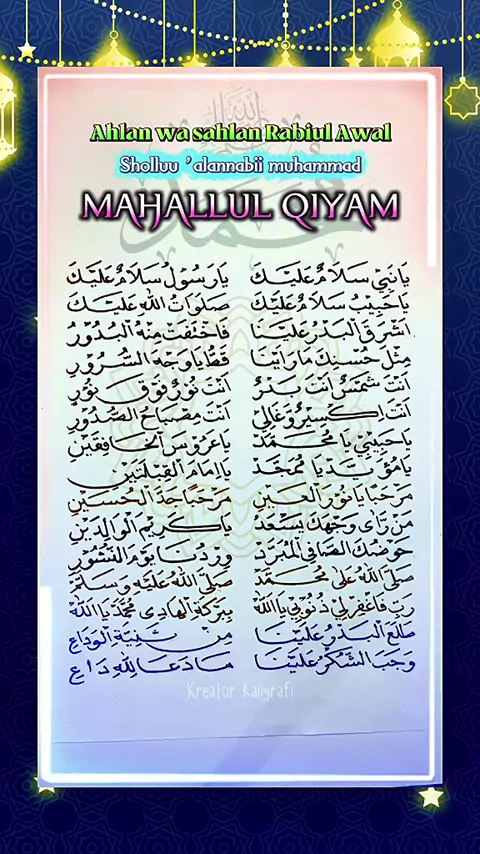 Ahlan wa sahlan Rabiul Awal
Sholluu 'alannabii muhammad
MAHALLUL QIYAM
يَانَبِيْ سَلَامٌ عَلَيْكَ يَارَسُوْلُ سَلَامٌ عَلَيْكَ
يَاحَبِيْبُ سَلَامٌ عَلَيْكَ صَلَوَاتُ اللهِ عَلَيْكَ
اَشْرَقَ الْبَدْرُ عَلَيْنَا فَاخْتَفَتْ مِنْهُ الْبُدُوْرُ
مِثْلَ حُسْنِكَ مَارَاَيْنَا قَطُّ يَاوَجْهَ السُّرُوْرِ
اَنْتَ شَمْسٌ اَنْتَ بَدْرٌ اَنْتَ نُوْرٌ فَوْقَ نُوْرٍ
اَنْتَ اِكْسِيْرٌ وَغَالِيْ اَنْتَ مِصْبَاحُ الصُّدُوْرِ
يَاحَبِيْبِيْ يَا مُحَمَّدُ يَاعَرُوْسَ الْخَافِقَيْنِ
يَامُؤَيَّدُ يَا مُمَجَّدُ يَااِمَامَ الْقِبْلَتَيْنِ
مَرْحَبًا يَانُوْرَ الْعَيْنِ مَرْحَبًا جَدَّ الْحُسَيْنِ
مَنْ رَأَى وَجْهَكَ يَسْعَدُ يَاكَرِيْمَ الْوَالِدَيْنِ
حَوْضُكَ الصَّافِى الْمُبَرَّدُ وِرْدُنَا يَوْمَ النُّشُوْرِ
صَلَّى اللهُ عَلَى مُحَمَّدٍ صَلَّى اللهُ عَلَيْهِ وَسَلَّمَ
رَبِّ فَاغْفِرْلِيْ ذُنُوْبِيْ يَااَللهُ بِبَرَكَةِ الْهَادِى مُحَمَّدٍ يَااَللهُ
طَلَعَ الْبَدْرُ عَلَيْنَا مِنْ ثَنِيَّةِ الْوَدَاعِ
وَجَبَ الشُّكْرُ عَلَيْنَا مَادَعَا لِلّٰهِ دَاعِ
Kreator Kaligrafi